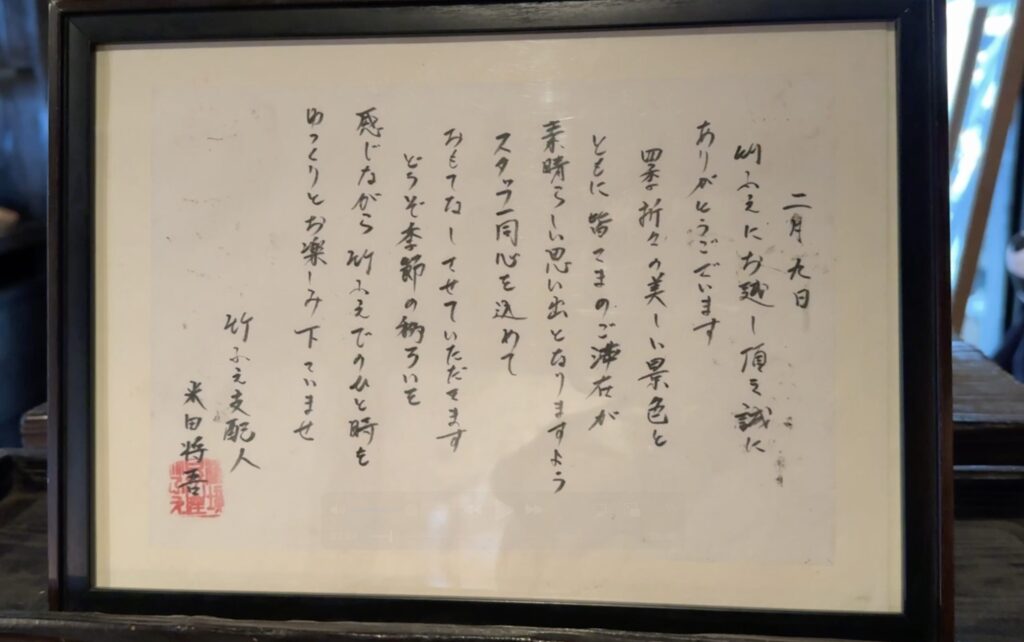 二月九日
竹ふえにお越し頂き誠に
ありがとうございます
四季折々の美しい景色と
ともに皆さまのご滞在が
素晴らしい思い出となりますよう
スタッフ一同心を込めて
おもてなしさせていただきます
どうぞ季節の移ろいを
感じながら竹ふえでのひと時を
ゆっくりとお楽しみ下さいませ
竹ふえ支配人
米田将吾